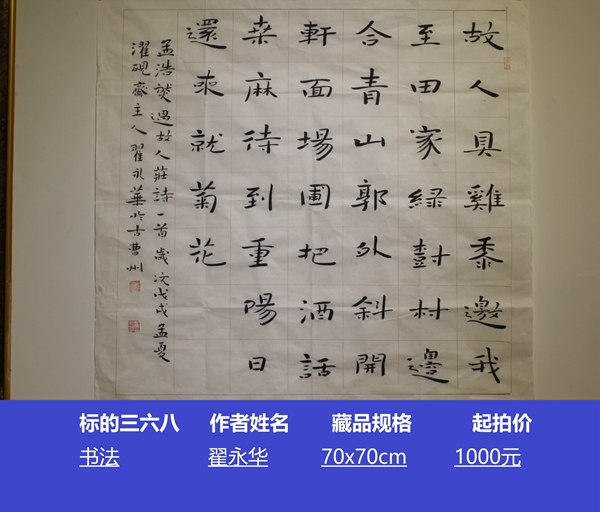 故人具雞黍邀我
至田家綠樹村邊
合青山郭外斜開
軒面場圃把酒話
桒麻待到重陽日
還來就菊花
孟浩然過故人莊詩一首歲次戊戌孟夏
濯硯齋主人翟永華於古曹州
标的三六八 作者姓名 藏品规格 起拍价
书法 翟永华 70x70cm 1000元